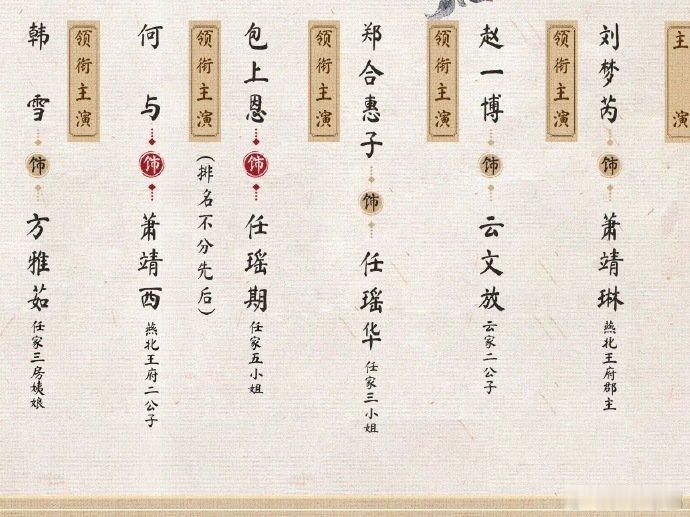 主演
刘梦芮 饰 萧靖琳 燕北王府郡主
领衔主演
赵一博 饰 云文放 云家二公子
领衔主演
郑合惠子 饰 任瑶华 任家三小姐
领衔主演
包上恩 饰 任瑶期 任家五小姐
领衔主演
(排名不分先后)
何与 饰 萧靖西 燕北王府二公子
领衔主演
韩雪 饰 方雅茹 任家三房姨娘